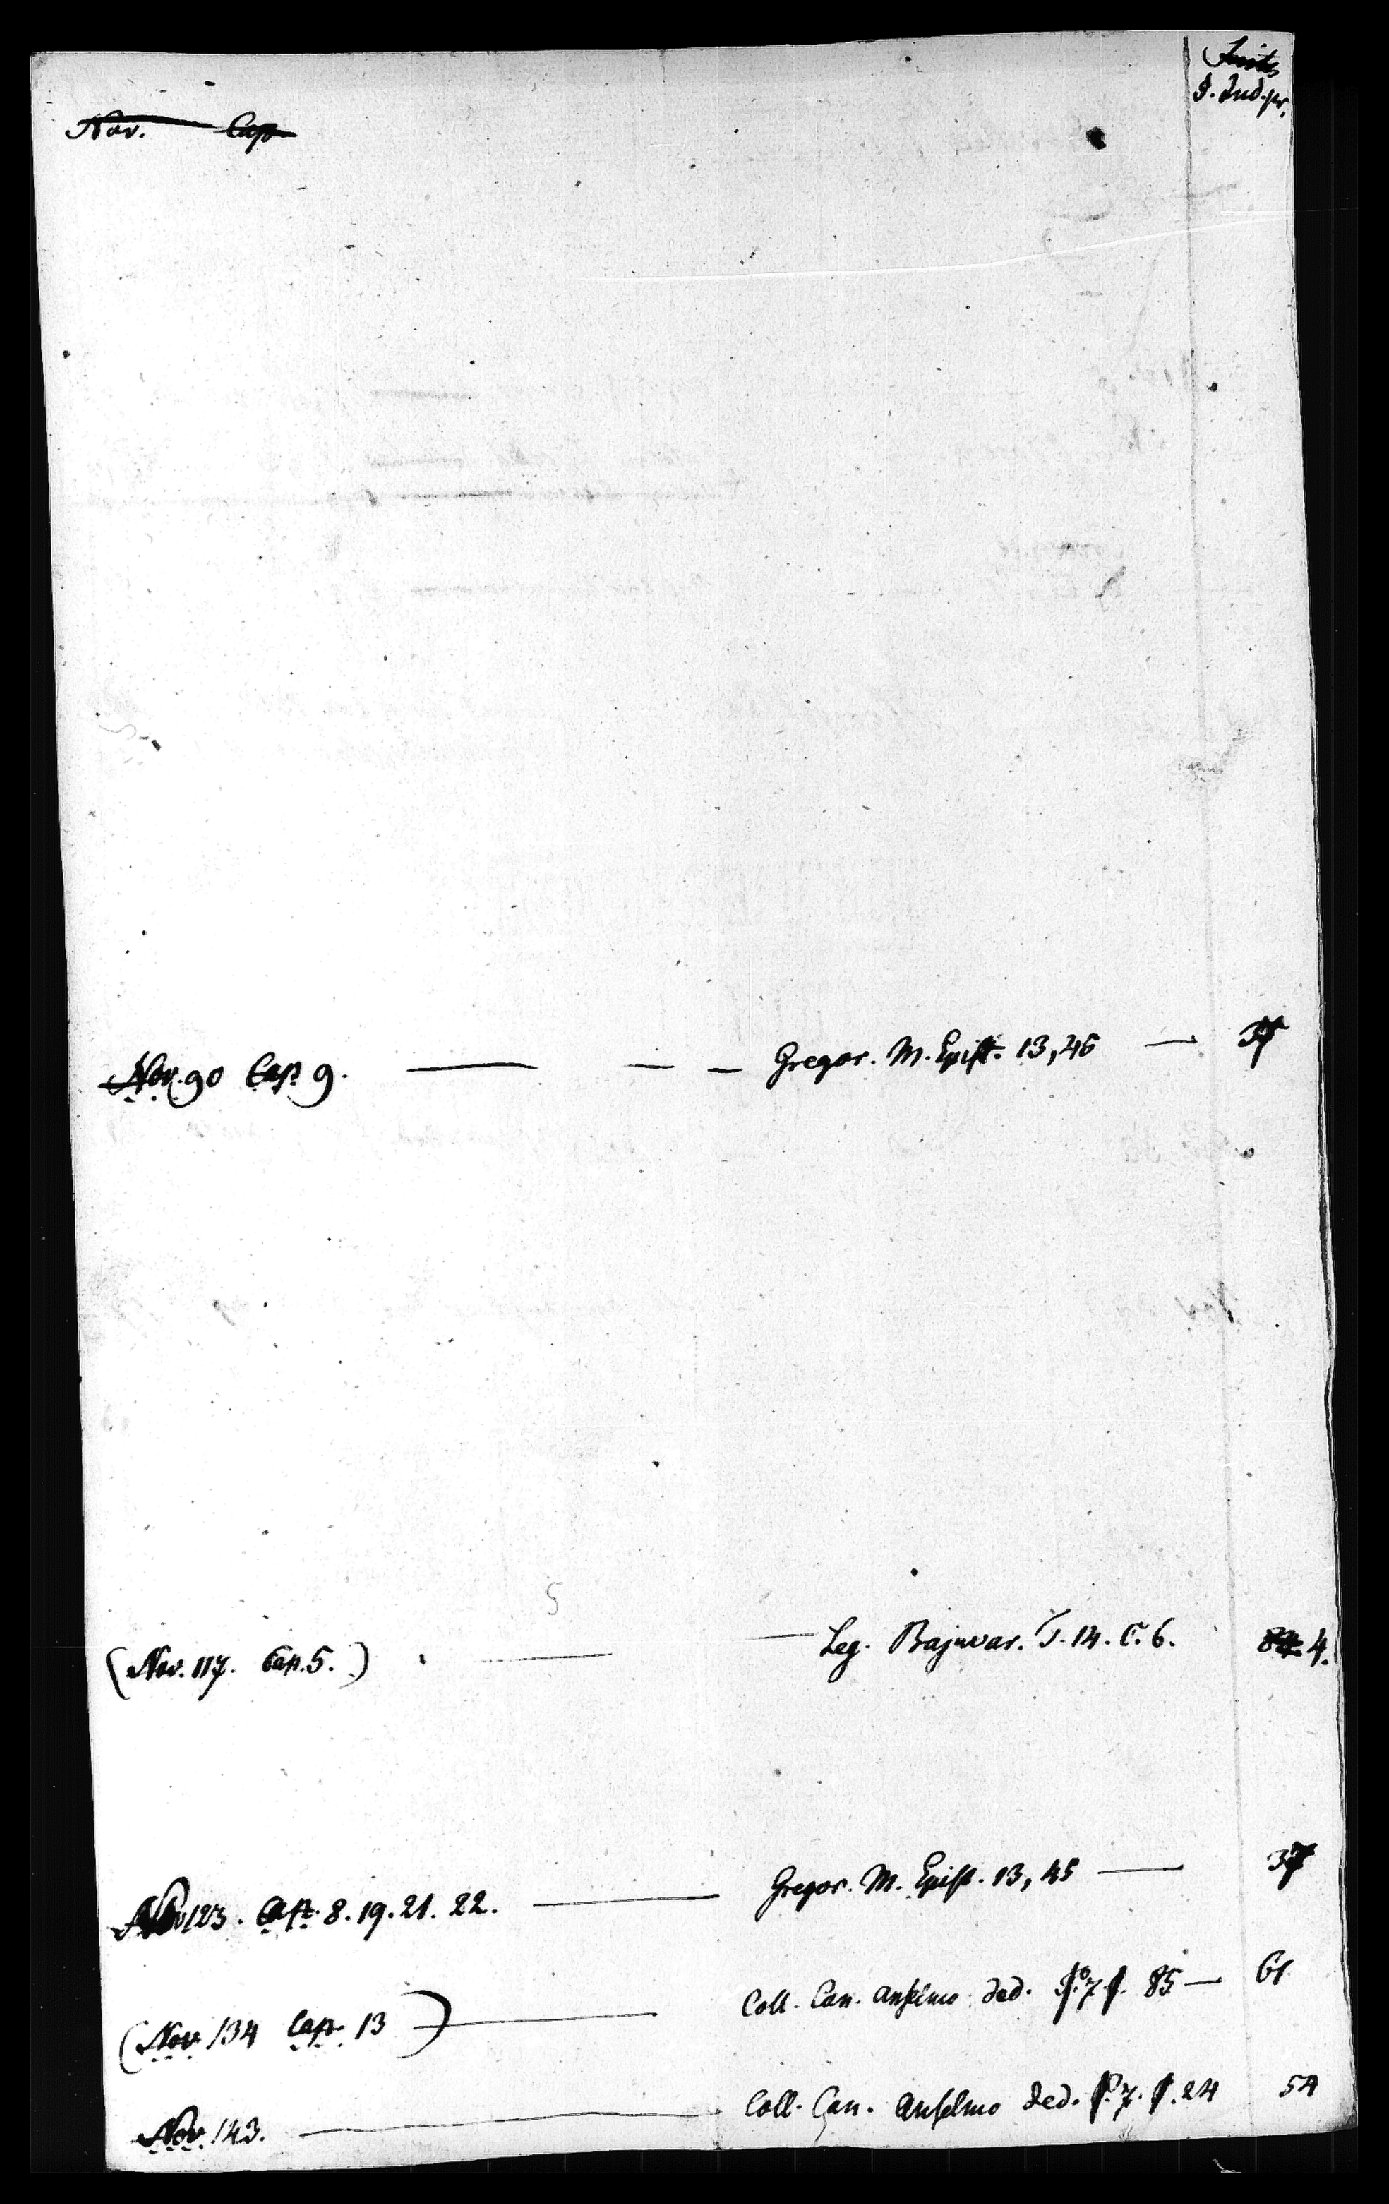 Nov. Cap
S. Ind. pr.
Nov. 90 Cap. 9. — — — Gregor. M. Epist. 13,45 — 37
5
(Nov. 117. Cap. 5.) — — Leg. Bajuvar. T. 14. C. 6. 4.
Nov 123. Cap. 8. 19. 21. 22. — Gregor. M. Epist. 13, 45 — 37
(Nov. 134 Cap. 13) — Coll. Can. Anselmo ded. P. 7. 85 — 61
Nov. 143. — Coll. Can. Anselmo ded. P. 7. 24 54